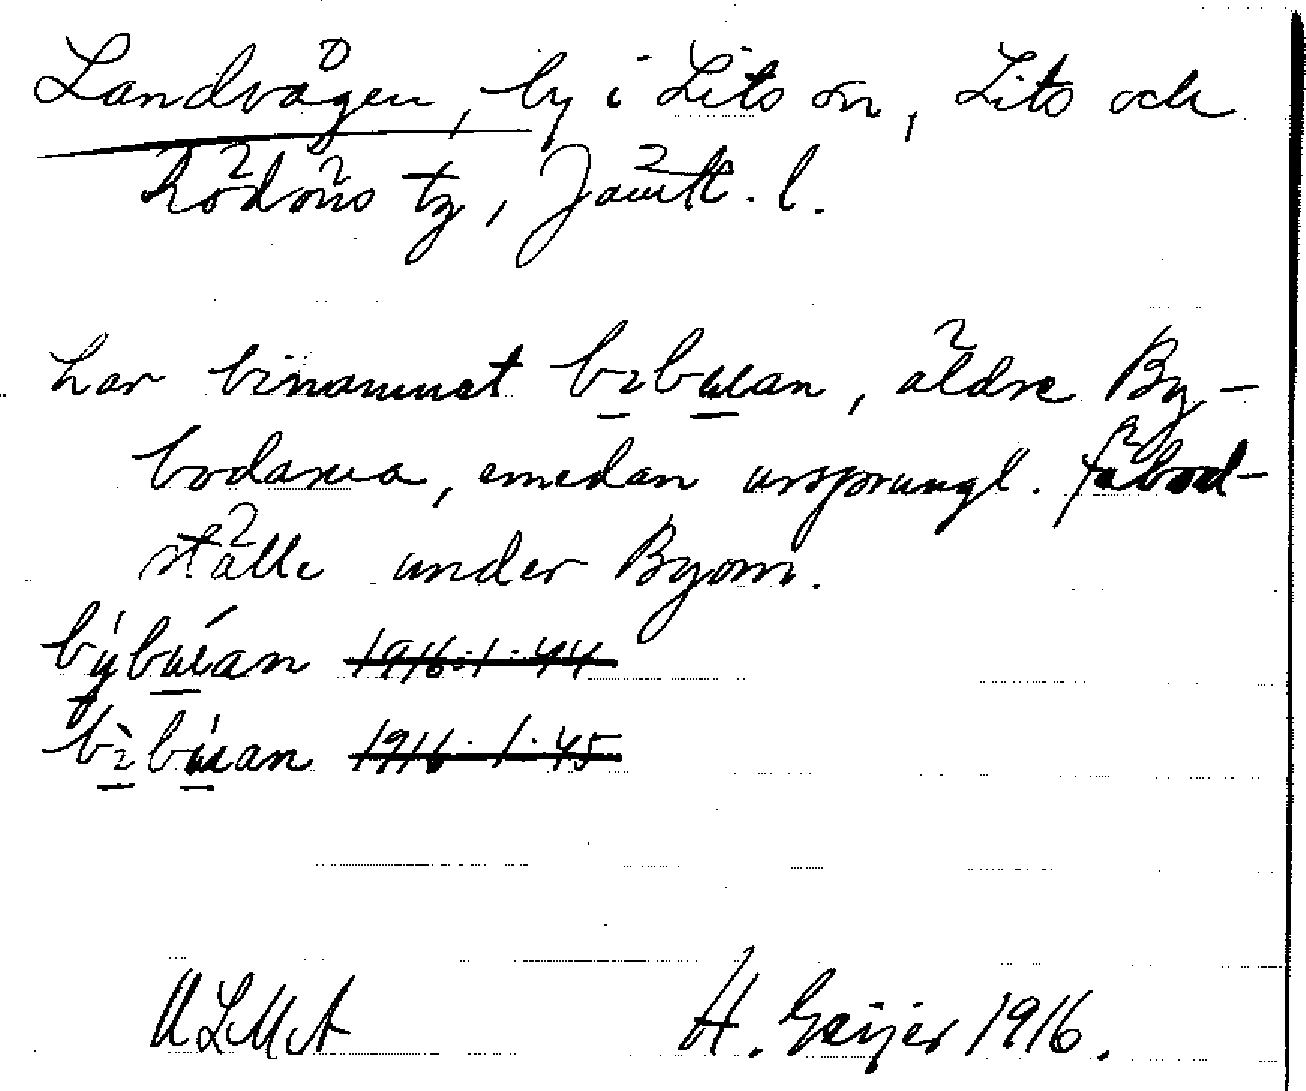 Landvågen, by i Lits sn, Lits och
Rödöns tg, Jämtl. l.
har binamnet bɪbuan, äldre By-
bodarna, emedan ursprungl. fäbod-
ställe under Byom.
býbuan 1916:1:44
bɪ̀búan 1916:1:45
ULMA H. Geijer 1916.